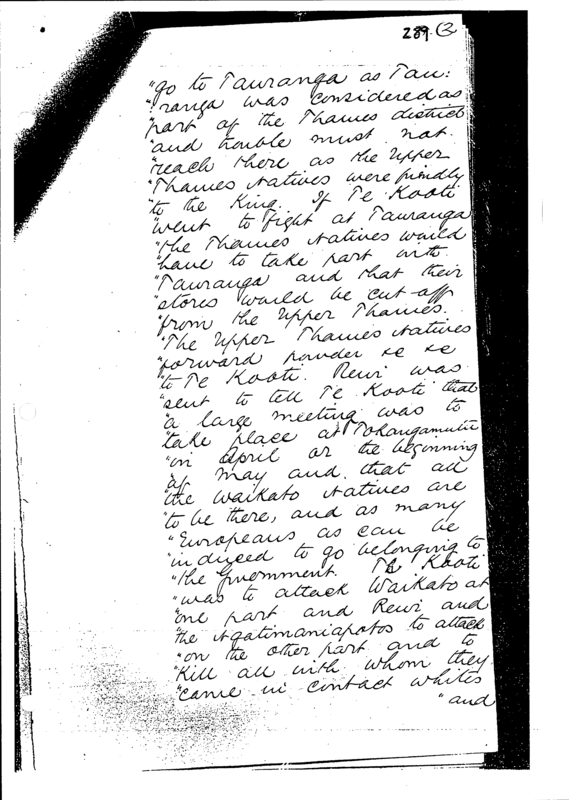 289. (2)
"go to Tauranga as Tau:
"ranga was considered as
"part of the Thames district
"and trouble must not
"reach there as the Upper
"Thames Natives were friendly
"to the King. If Te Kooti
"went to fight at Tauranga
"the Thames Natives would
"have to take part with
"Tauranga and that their
"stores would be cut off
"from the Upper Thames.
"The Upper Thames Natives
"forward powder &c &c
"to Te Kooti. Rewi was
"sent to tell Te Kooti that
"a large meeting was to
"take place at Tokangamutu
"in April or the beginning
"of May and that all
"the Waikato Natives are
"to be there, and as many
"Europeans as can be
"induced to go belonging to
"the Government. Te Kooti
"was to attack Waikato at
"one part and Rewi and
"the Ngatimaniapotos to attack
"on the other part and to
"Kill all with whom they
"came in contact whites
"and